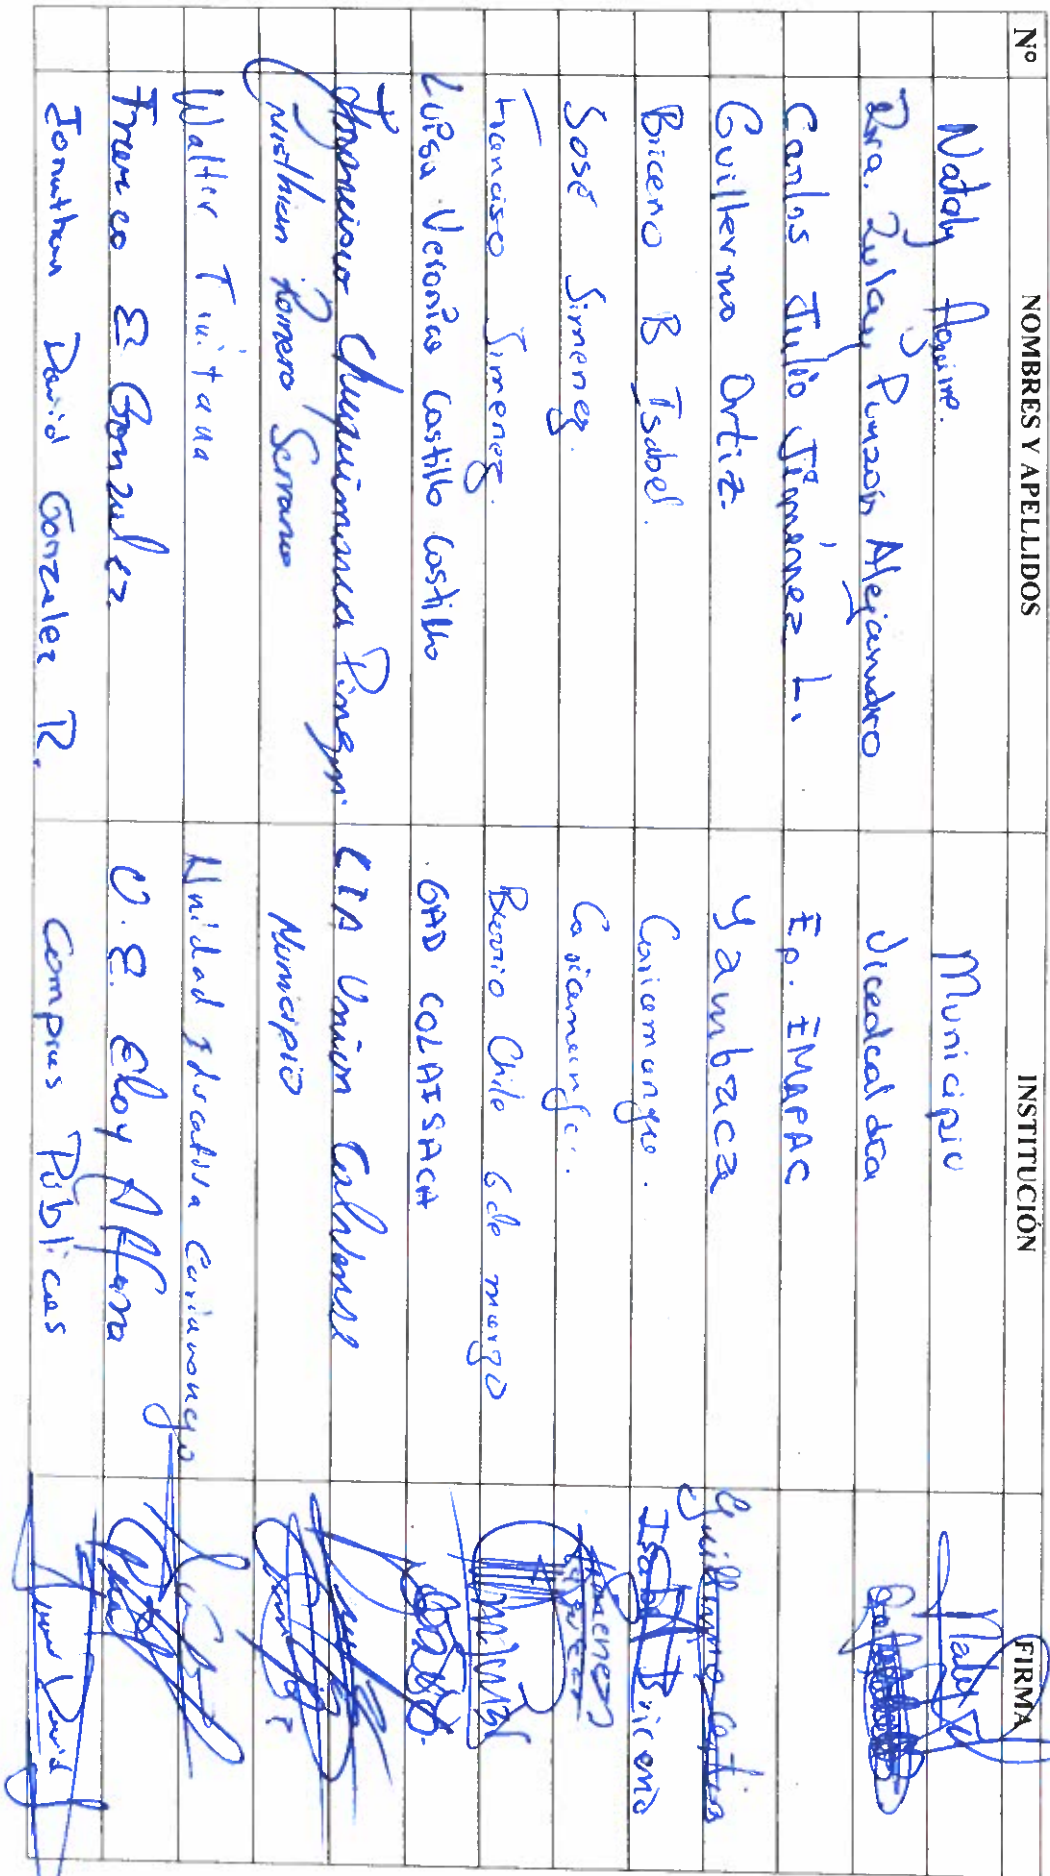 Nº NOMBRES Y APELLIDOS INSTITUCIÓN FIRMA
Nataly Municipio
Dra. Zulay Punzón Alejandro Vicealcaldía
Carlos Julio Jiménez L. Ep. EMAPAC
Guillermo Ortiz Yambaca Guillermo
Briceno B Isabel. Cariamanga. Isabel Briceno
José Jimenez. Cariamanga.
Francisco Jimenez. Barrio Chile 6 de marzo
Luisa Veronica Castillo Castillo GAD COLAISACA
Francisco Chuquimarca CIA Union Calvense
Cristhian Romero Serrano Municipio
Walter Tuitana Unidad Educativa Cariamanga
Franco E Gonzalez. U.E. Eloy Alfaro
Jonathan David Gonzalez R. Compras Públicas David